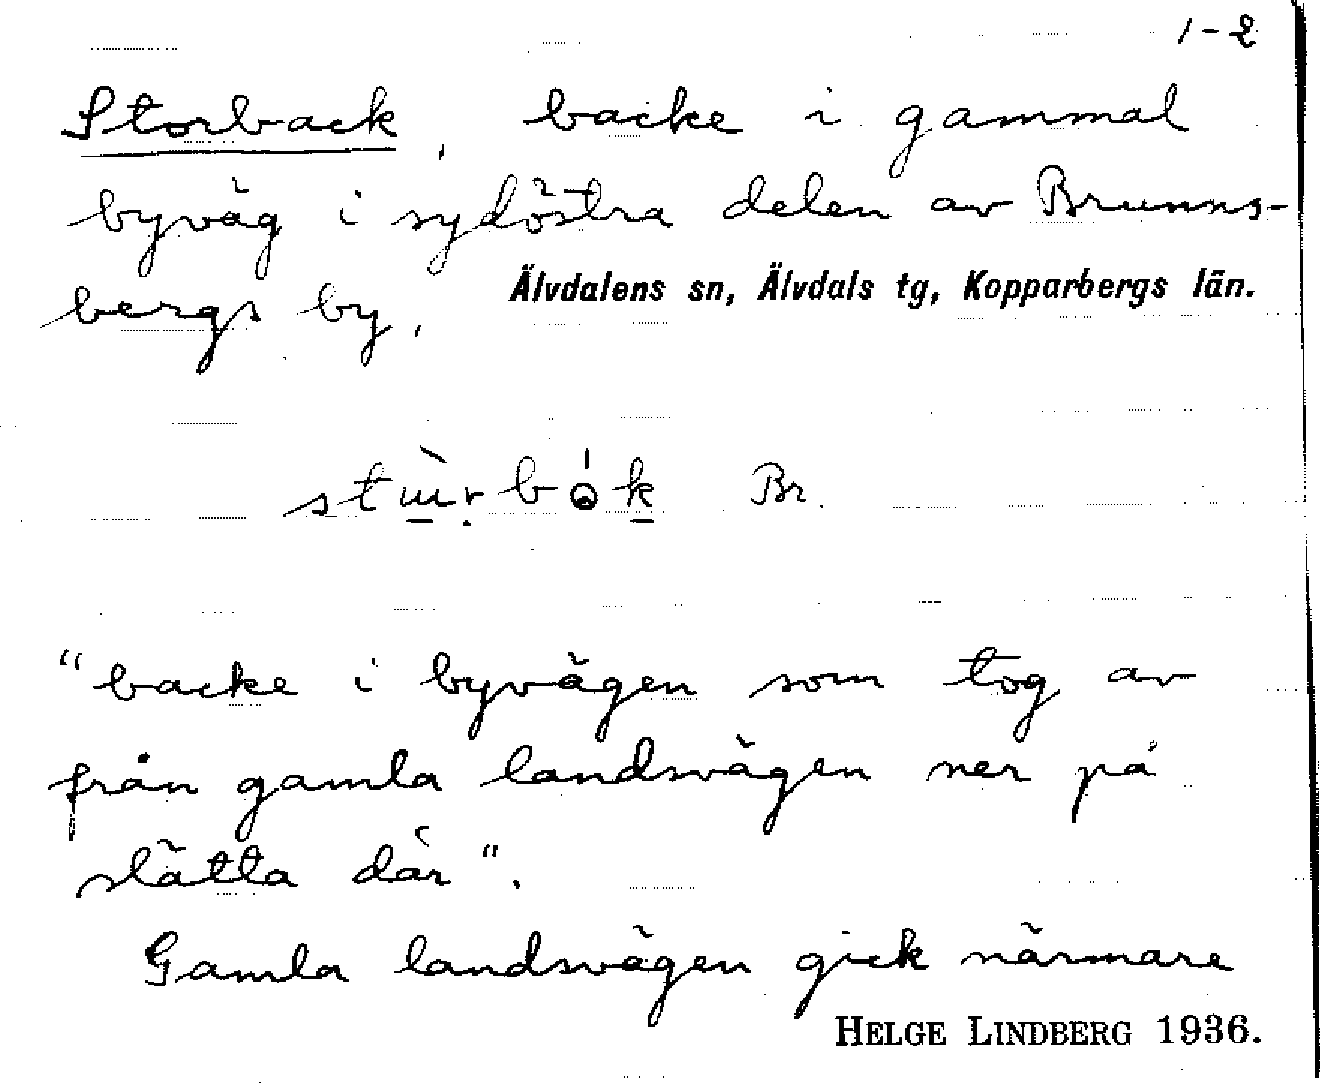 1-2
Storback, backe i gammal
byväg i sydöstra delen av Brunns-
bergs by.
Älvdalens sn, Älvdals tg, Kopparbergs län.
Br.
"backe i byvägen som tog av
från gamla landsvägen ner på
slätta där".
Gamla landsvägen gick närmare
HELGE LINDBERG 1936.